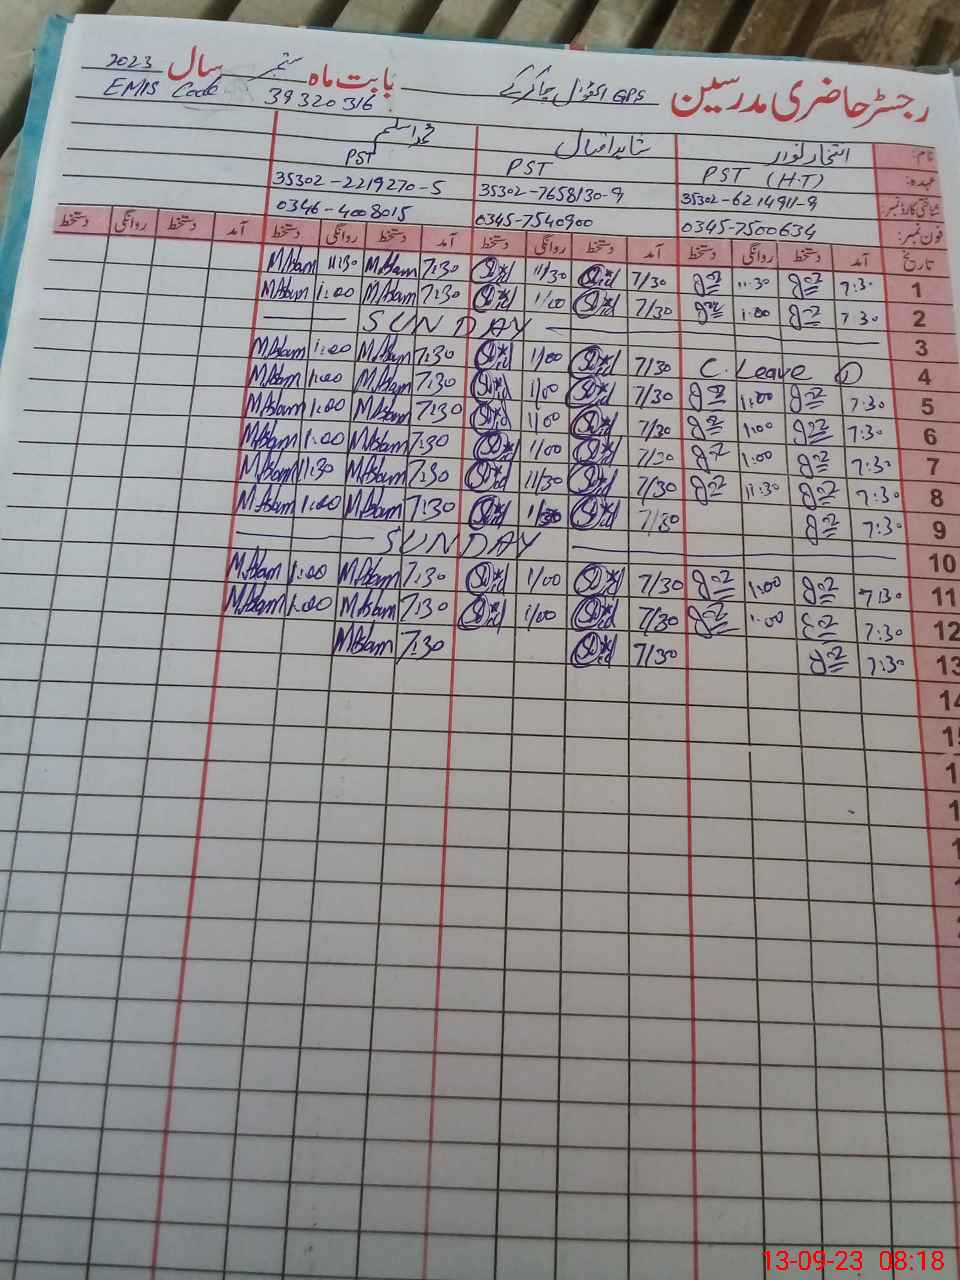 رجسٹر حاضری مدرسین GPS بابت ماہ ستمبر سال 2023
EMIS Code 39320316
نام: افتخار انور شاہد اقبال محمد اسلم
عہدہ: PST (H-T) PST PST
شناختی کارڈ نمبر: 35302-6214911-9 35302-7658130-9 35302-2219270-5
فون نمبر: 0345-7500634 0345-7540900 0346-4008015
تاریخ آمد دستخط روانگی دستخط آمد دستخط روانگی دستخط آمد دستخط روانگی دستخط آمد دستخط روانگی دستخط
1 7:30 11:30 7/30 11/30 7:30 M.Aslam 11:30 M.Aslam
2 7:30 1:00 7/30 1/00 7:30 M.Aslam 1:00 M.Aslam
3 SUNDAY
4 C. Leave 1 7/30 1/00 7:30 M.Aslam 1:00 M.Aslam
5 7:30 1:00 7/30 1/00 7:30 M.Aslam 1:00 M.Aslam
6 7:30 1:00 7/30 1/00 7:30 M.Aslam 1:00 M.Aslam
7 7:30 1:00 7/30 1/00 7:30 M.Aslam 1:00 M.Aslam
8 7:30 11:30 7/30 11/30 7:30 M.Aslam 11:30 M.Aslam
9 7:30 7/30 7:30 M.Aslam 1:00 M.Aslam
10 SUNDAY
11 7:30 1:00 7/30 1/00 7:30 M.Aslam 1:00 M.Aslam
12 7:30 1:00 7/30 1/00 7:30 M.Aslam 1:00 M.Aslam
13 7:30 7/30 7:30 M.Aslam
14
13-09-23 08:18